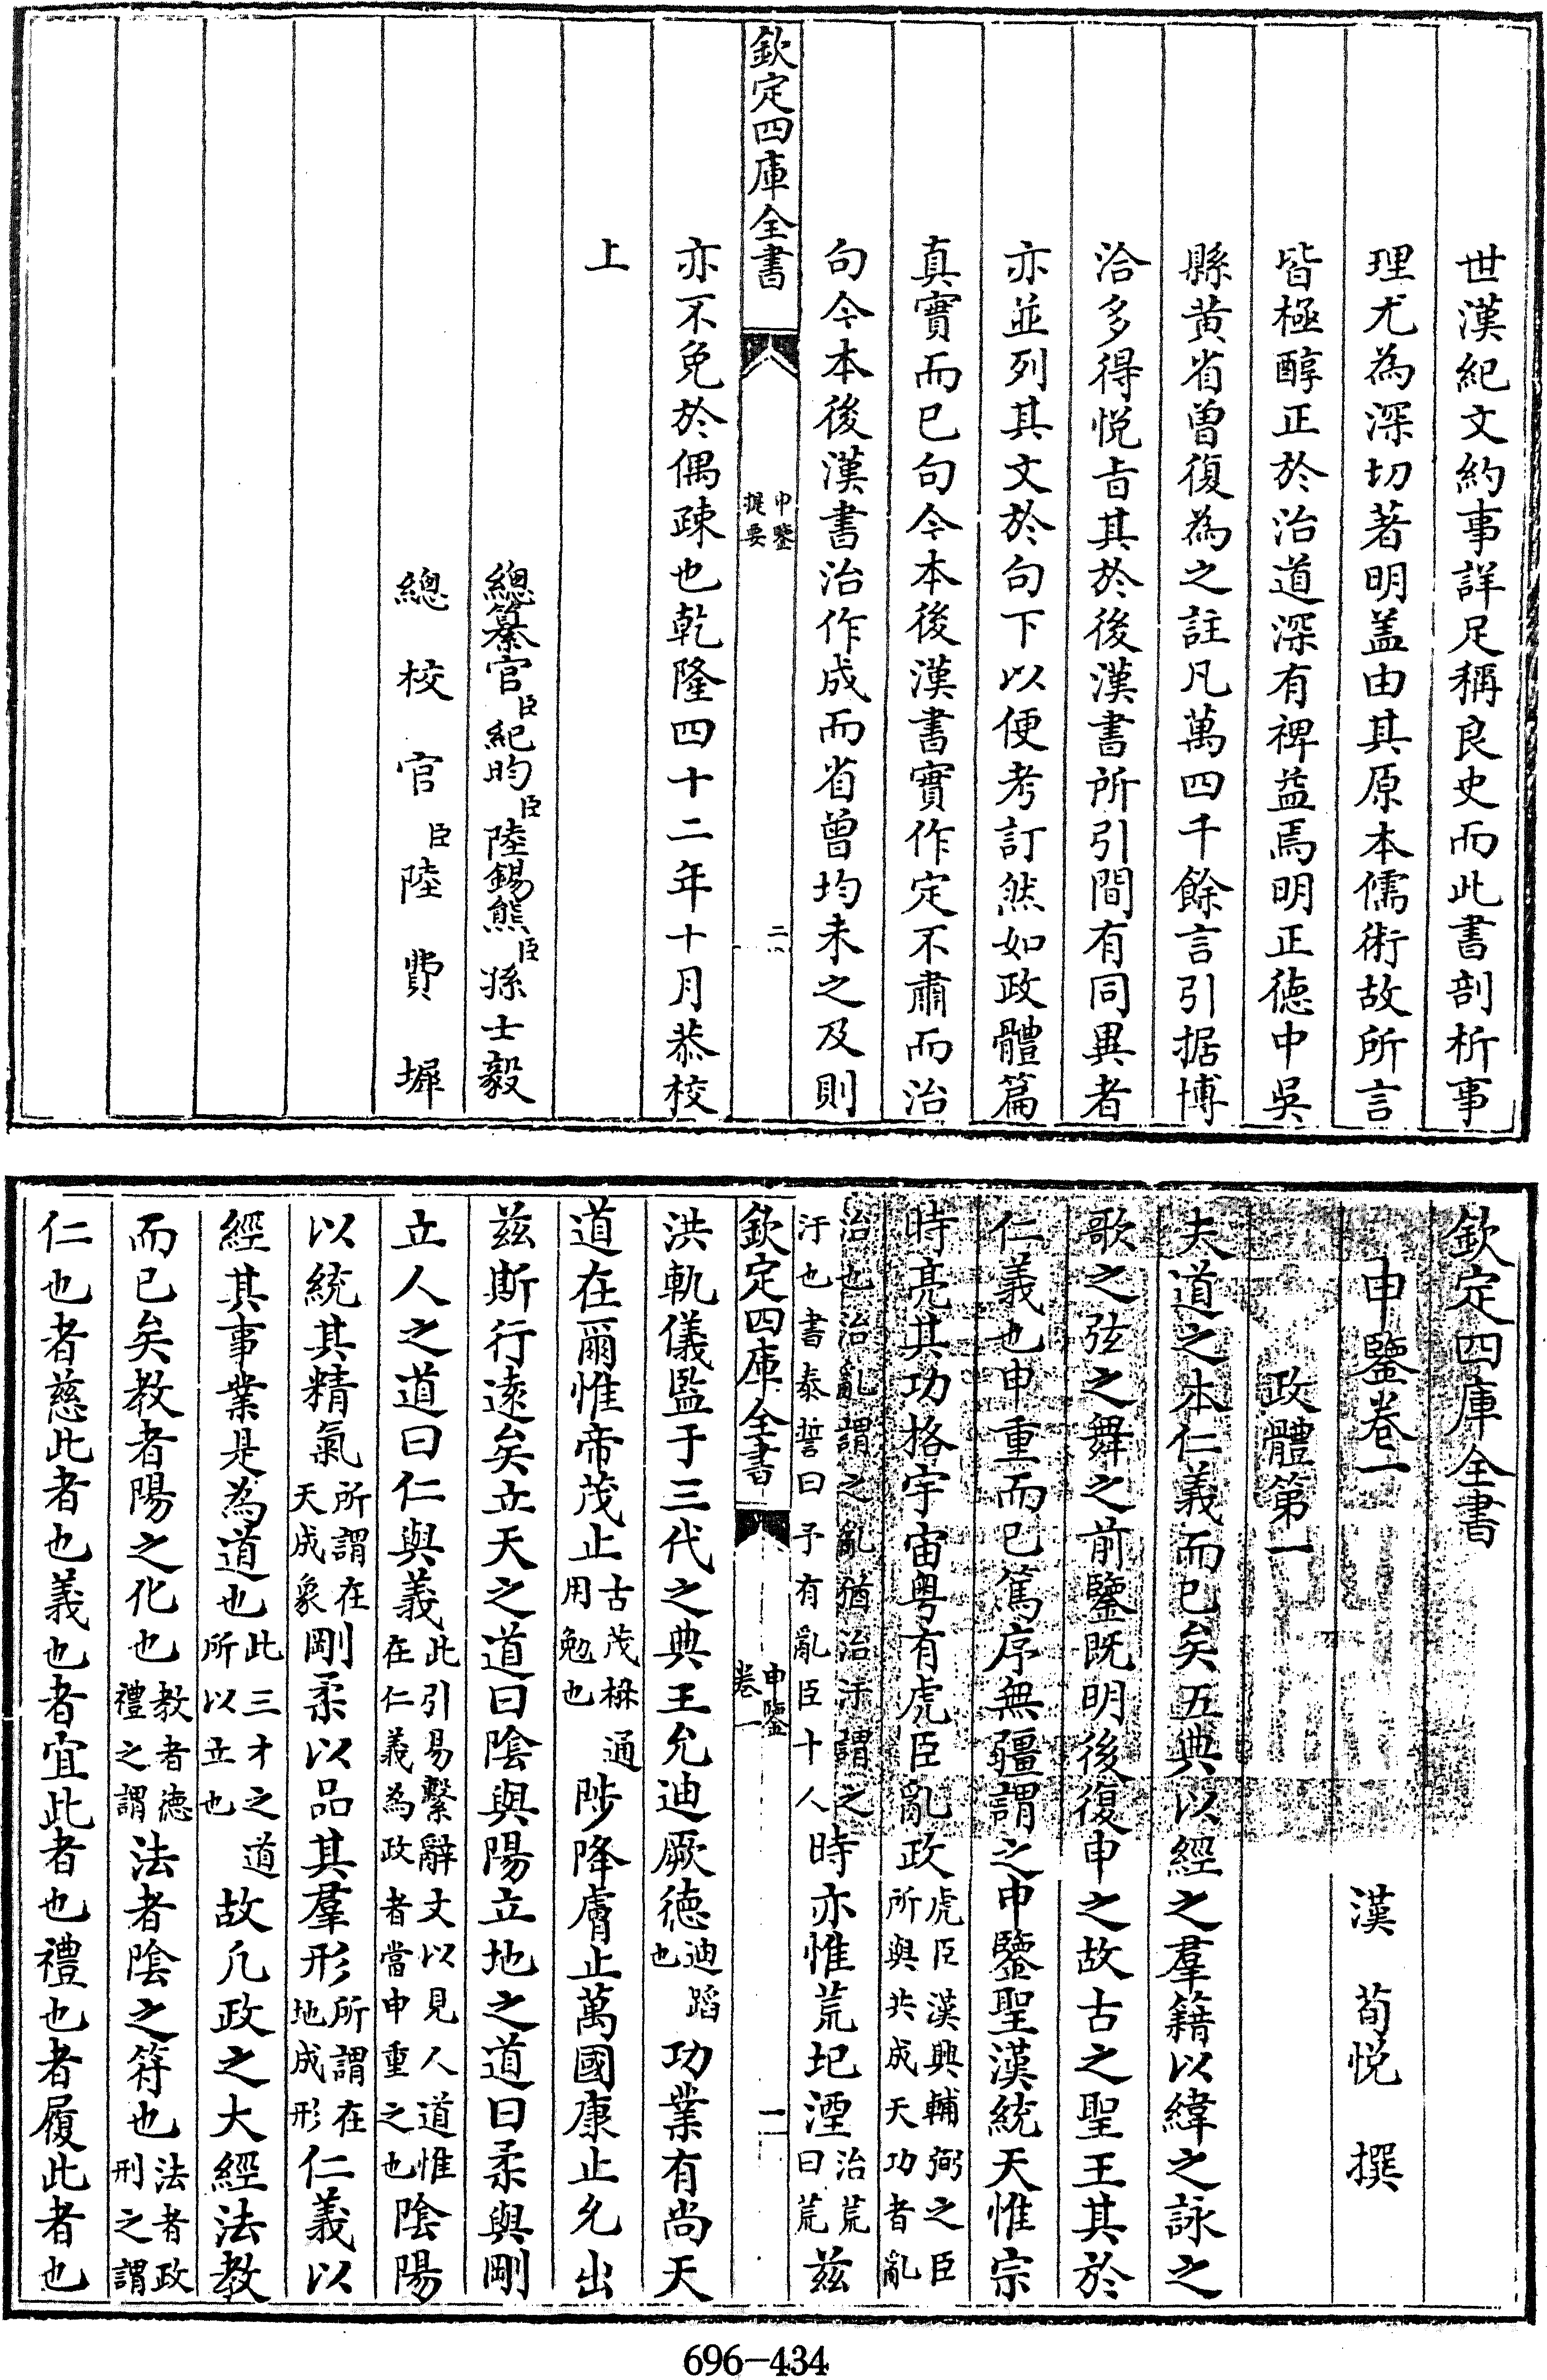 世漢紀文約事詳足稱良史而此書剖析事
理尤為深切著明盖由其原本儒術故所言
皆極醇正於治道深有裨益焉明正徳中吳
縣黄省曾復為之註凡萬四千餘言引据博
洽多得悦旨其於後漢書所引間有同異者
亦並列其文於句下以便考訂然如政體篇
真實而已句今本後漢書實作定不肅而治
句今本後漢書治作成而省曾均未之及則
欽定四庫全書
申鑒
提要
二
亦不免於偶疎也乾隆四十二年十月恭校
上
總纂官臣紀昀臣陸錫熊臣孫士毅
總校官臣陸費墀
欽定四庫全書
申鑒卷一
漢 荀悦 撰
政體第一
夫道之本仁義而已矣五典以經之羣籍以緯之詠之
歌之弦之舞之前鑒既明後復申之故古之聖王其於
仁義也申重而已篤序無疆謂之申鑒聖漢統天惟宗
時亮其功格宇宙粤有虎臣亂政虎臣漢興輔弼之臣
所與共成天功者亂
治也治亂謂之亂猶治汙謂之
汙也書泰誓曰予有亂臣十人時亦惟荒圮湮治荒
曰荒兹
欽定四庫全書
申鑒
卷一
一
洪軌儀監于三代之典王允迪厥徳迪蹈
也功業有尚天
道在爾惟帝茂止古茂楙通
用勉也陟降膚止萬國康止允出
兹斯行遠矣立天之道曰陰與陽立地之道曰柔與剛
立人之道曰仁與義此引易繫辭文以見人道惟
在仁義為政者當申重之也陰陽
以統其精氣所謂在
天成象剛柔以品其羣形所謂在
地成形仁義以
經其事業是為道也此三才之道
所以立也故凡政之大經法教
而已矣教者陽之化也教者徳
禮之謂法者陰之符也法者政
刑之謂
仁也者慈此者也義也者宜此者也禮也者履此者也
696-434